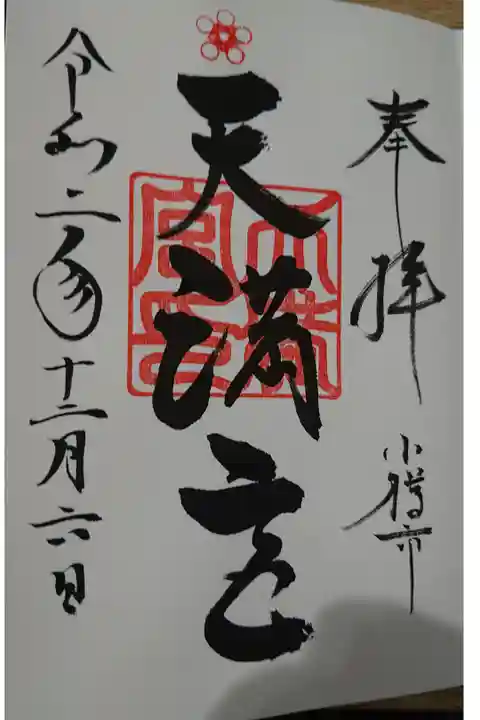 奉拝
小樽市
天満宮
令和二年十二月六日